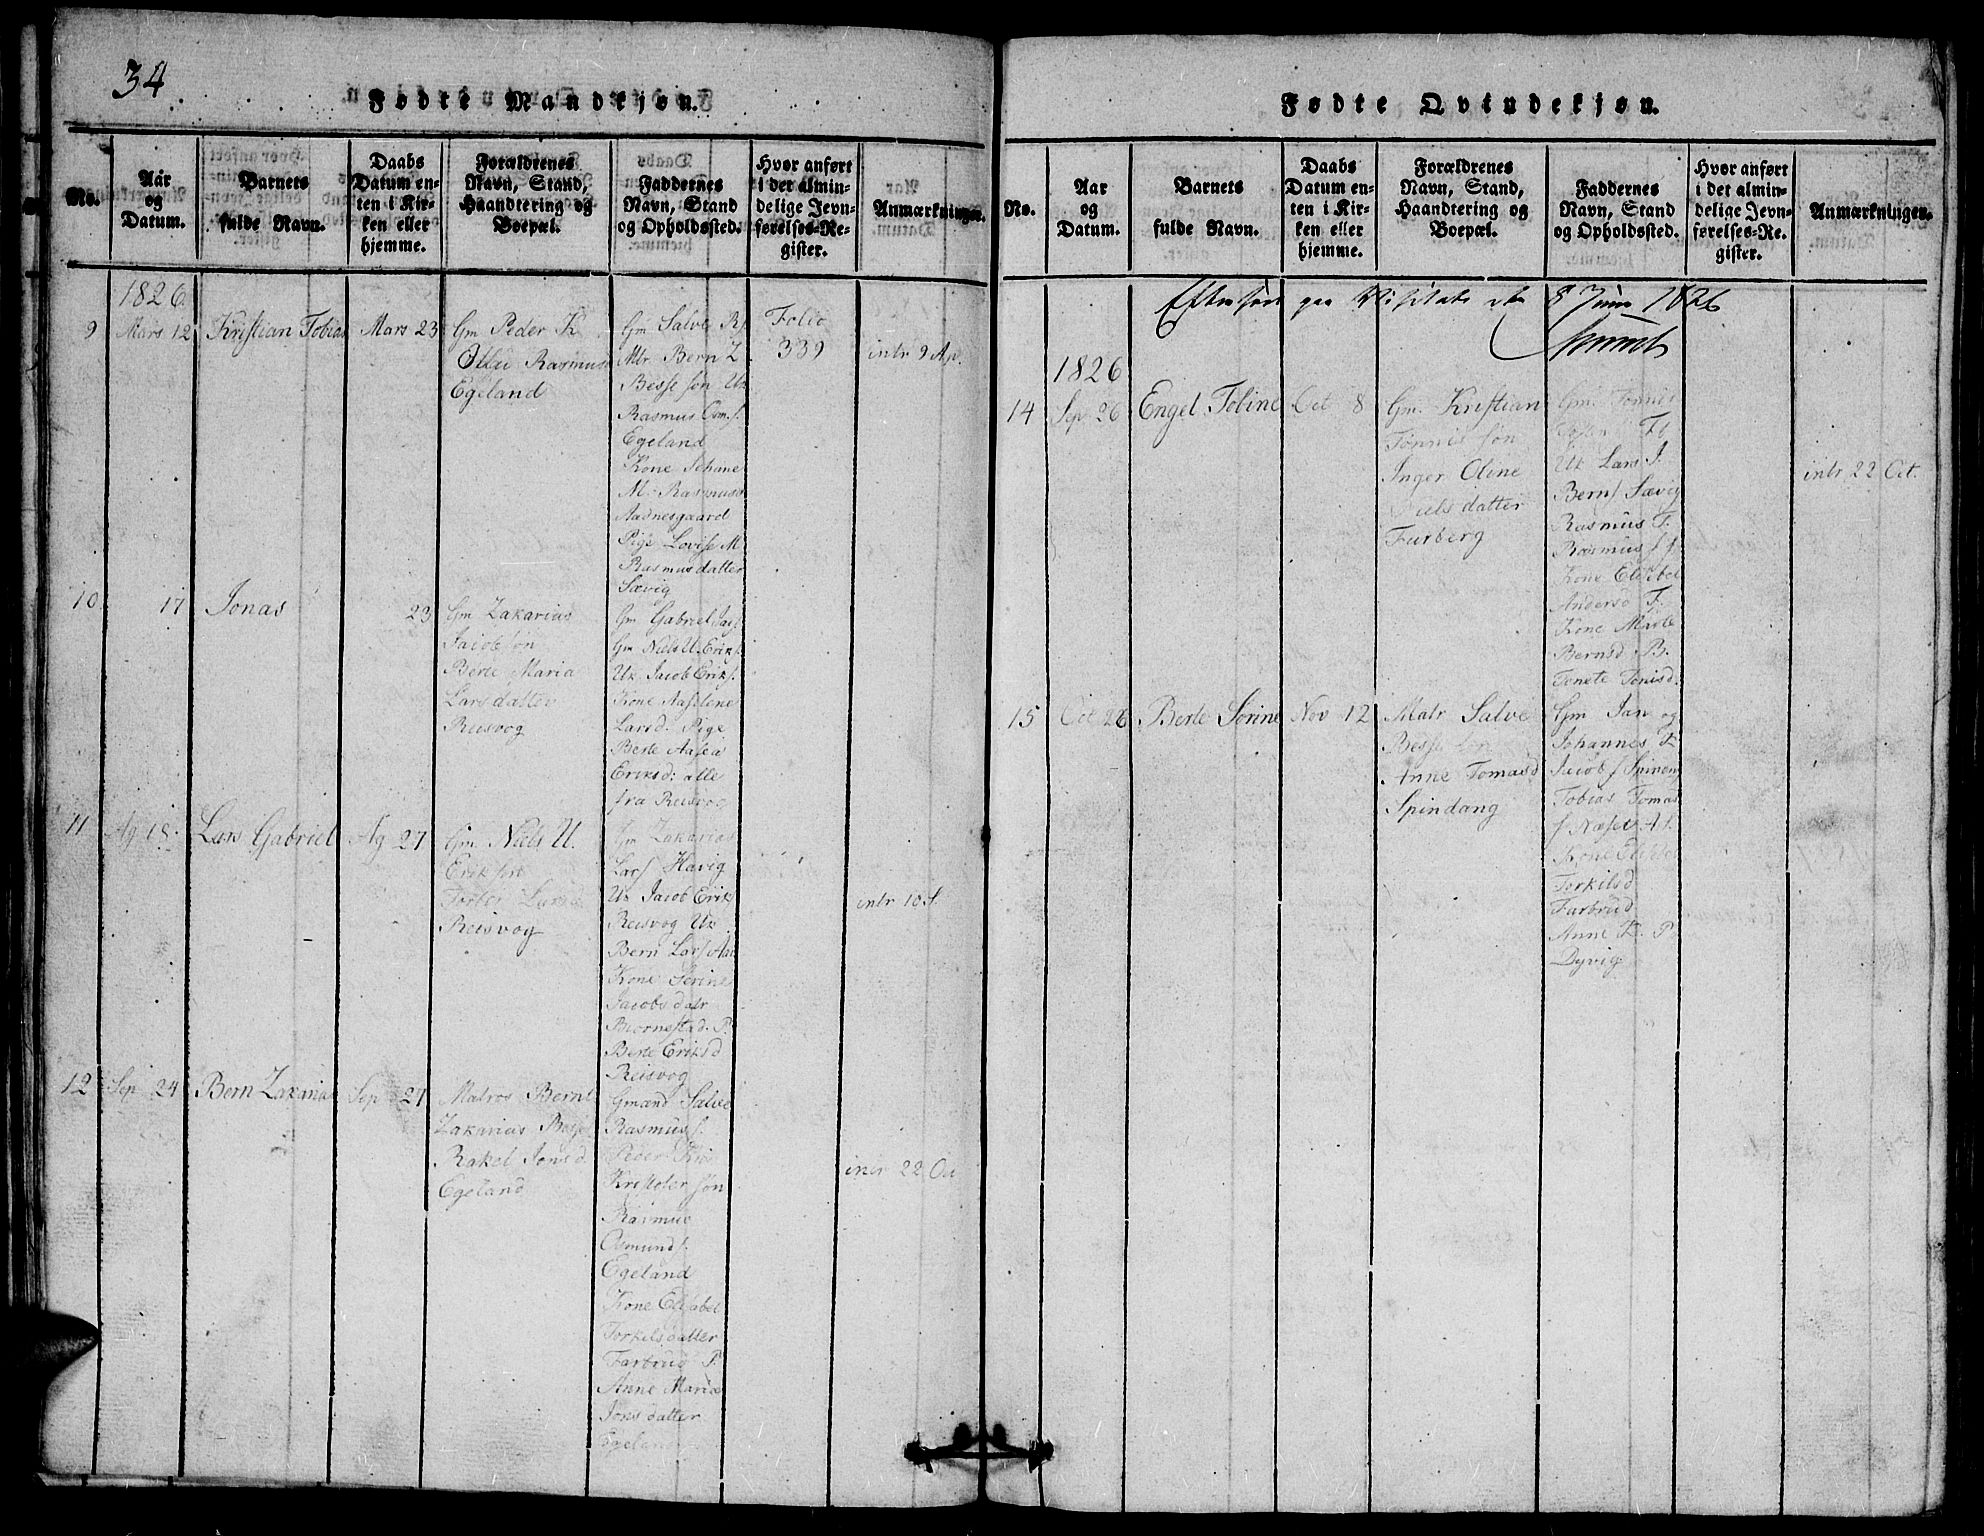 34
Fødte Mandkjøn.
No.
Aar
og
Datum.
Barnets
fulde Navn.
Daabs
Datum en-
ten i Kir-
ken eller
hjemme.
Forældrenes
Navn, Stand,
Haandtering og
Boepæl.
Faddernes
Navn, Stand
og Opholdssted.
Hvor anført
i det almin-
delige Jevn-
førelses-Re-
gister.
Anmærkninger.
1826
9 Mars 12 Kristian Tobias Mars 23
Gm Peder K
Rasmusd
Egeland
Gm Salve R f.
Mtr Bern Z.
Besse søn Uk
Rasmus Osm. f.
Egeland
Kone Sehane
M. Rasmusd
Aadnesgaard
Pige Lovise M
Rasmusdatter
Sævig
Folio
339
intr 9 Ap.
10 17 Jonas 23
Gm Zakarias
Jacob søn
Berte Maria
Lars datter
Reisvog
Gm Gabriel Jac f.
Gm Niels U. Erik f.
Uk Jacob Erik f.
Kone Aaselene
Larsd. Pige
Berte Aasea
Eriksd: alle
fra Reisvog
11 Ag 18. Lars Gabriel Ag 27
Gm. Niels U.
Erik søn
Larsd
Reisvog
Gm Zakarias
Lars Havig
Uk Jacob Erik f
Reisvog Uk
Bern Lars
Kone Serine
Jacobs datr
Biørnestad. P.
Berte Eriksd
Reisvog
intr 10 S.
12 Sep 24 Bern Zakarias Sep 27
Matros Bernt
Zakarias Besse
Rakel Jonsd
Egeland
Gmænd Salve
Rasmus f.
Peder Kri
Kristofer søn
Rasmus
Osmund f.
Egeland
Kone Elisabet
Torkelsdatter
Farbrud P.
Anne Maria
Jons datter
Egeland
intr 22 Oct
Fødte Qvindekjøn.
No.
Aar
og
Datum.
Barnets
fulde Navn.
Daabs
Datum en-
ten i Kir-
ken eller
hjemme.
Forældrenes
Navn, Stand,
Haandtering og
Boepæl.
Faddernes
Navn, Stand
og Opholdssted.
Hvor anført
i det almin-
delige Jevn-
førelses-Re-
gister.
Anmærkninger.
Efterseet paa Visitats den 8 Juni 1826
1826
14 Sep 26 Engel Tobine Oct 8
Gm. Kristian
Tønnis søn
Inger Oline
Niels datter
Furberg
Gm. Tønnes
Uk Lars J.
Bern f Sævig
Rasmus T.
Rasmus f f
Kone Elisabet
Andersd F.
Kone Marte
Bernsd B.
Tonete Tonisd.
intr 22 Oct.
15 Oct 26 Berte Serine Nov 12
Matr Salve
Besse søn
Anne Tomasd
Spindang
Gm Jan og
Johannes K
Jacob f Spinang
Tobias Tomas
f Næset
Kone
Torkilsd
Farbrud
Anne K. P.
Dyvig